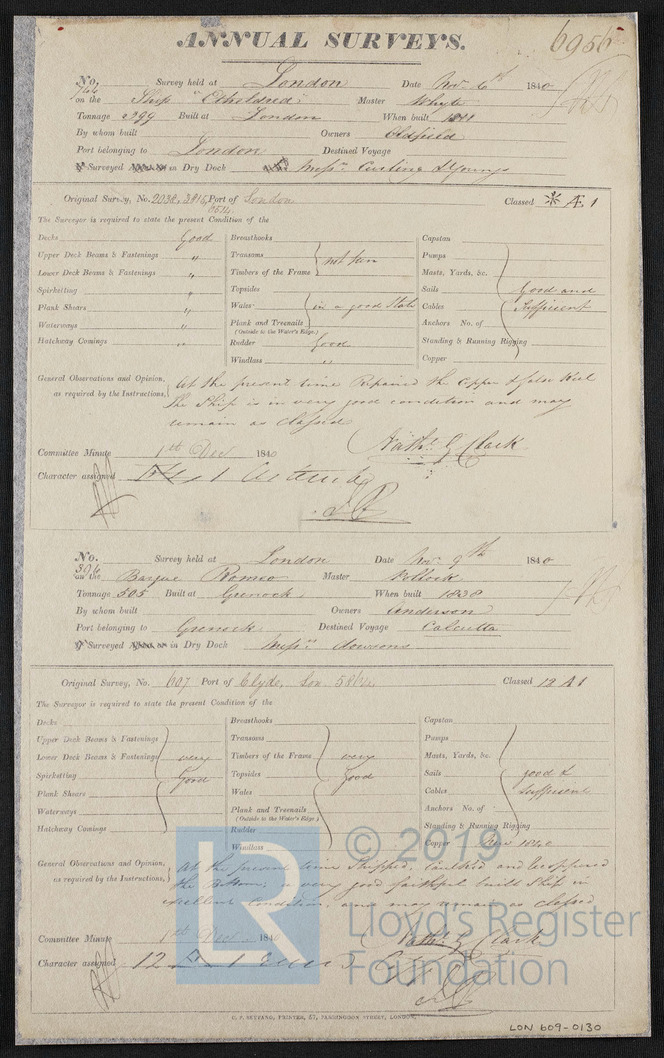 ANNUAL SURVEYS.
6956
No. 766 Survey held at London Date Nov. 6th 1840
on the Ship "Etheldred" Master Whyte
Tonnage 399 Built at London When built
By whom built Owners Oldfield
Port belonging to London Destined Voyage
Surveyed in Dry Dock Messrs Curling & Youngs
Original Survey, No. Port of London Classed Æ 1
The Surveyor is required to state the present Condition of the
Decks Good Breasthooks Capstan
Upper Deck Beams & Fastenings " Transoms Pumps
Lower Deck Beams & Fastenings " Timbers of the Frame not seen Masts, Yards, &c.
Spirketting " Topsides Sails Good and
Plank Shears " Wales in a good State Cables Sufficient
Waterways " Plank and Treenails Anchors No. of
(Outside to the Water's Edge.)
Hatchway Comings " Rudder Good Standing & Running Rigging
Windlass " Copper
General Observations and Opinion, At the present time Repaired the Copper & false Keel
as required by the Instructions, The Ship is in very good condition and may
remain as classed
Nathl. G Clark
Committee Minute 1st Dec 1840
Character assigned
No. 396 Survey held at London Date Nov. 9th 1840
on the Barque Romeo Master Pollock
Tonnage 505 Built at Greenock When built 1838
By whom built Owners Anderson
Port belonging to Greenock Destined Voyage Calcutta
Surveyed in Dry Dock Messrs Dowsons
Original Survey, No. 607 Port of Clyde, Lon Classed 12 A 1
The Surveyor is required to state the present Condition of the
Decks Breasthooks Capstan
Upper Deck Beams & Fastenings Transoms Pumps
Lower Deck Beams & Fastenings very Timbers of the Frame very Masts, Yards, &c.
Spirketting Good Topsides good Sails good &
Plank Shears Wales Cables Sufficient
Waterways Plank and Treenails Anchors No. of
(Outside to the Water's Edge.)
Hatchway Comings Rudder Standing & Running Rigging
Windlass Copper New 1840
General Observations and Opinion, At the present time Stripped, Caulked and Recoppered
as required by the Instructions, the Bottom; a very good faithful built Ship in
excellent Condition, and may remain as classed
Nathl. G Clark
Committee Minute 1st Dec 1840
Character assigned 12 A 1
LR © 2019
Lloyd's Register
Foundation
C. F. SEYFANG, PRINTER, 57, FARRINGDON STREET, LONDON.
LON 609-0130